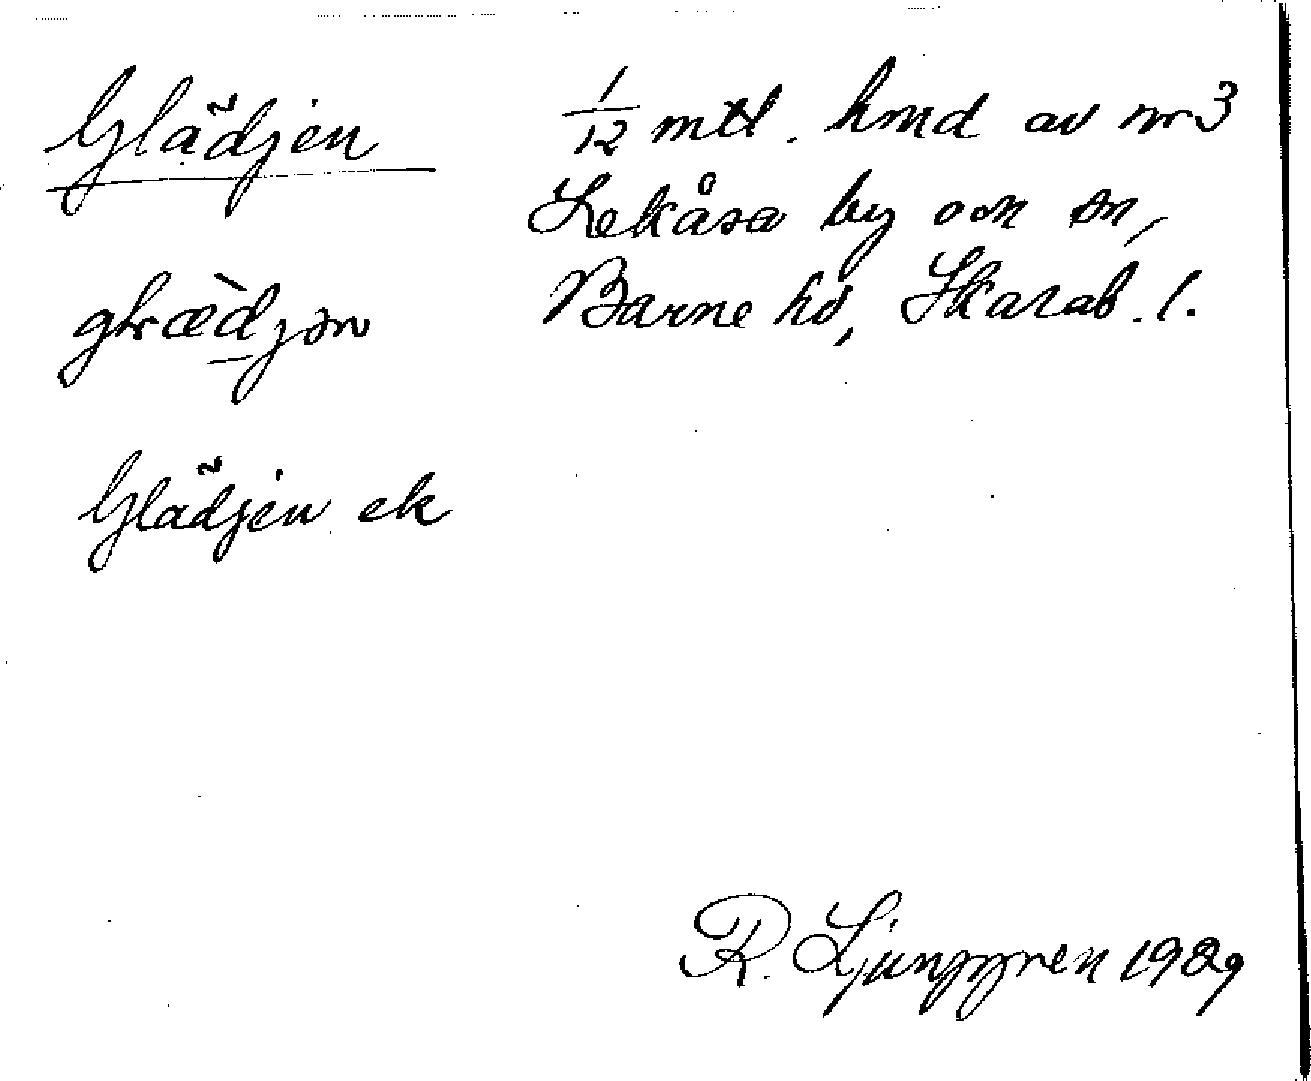 Glädjen
glædjən
Glädjen ek
1/12 mtl. hmd av nr 3
Lekåsa by och sn,
Barne hd, Skarab. l.
R. Ljunggren 1929